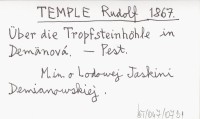 TEMPLE Rudolf 1867.
Über die Tropfsteinhöhle in
Demánová. — Pest.
M.in. o Lodowej Jaskini
Demianowskiej.